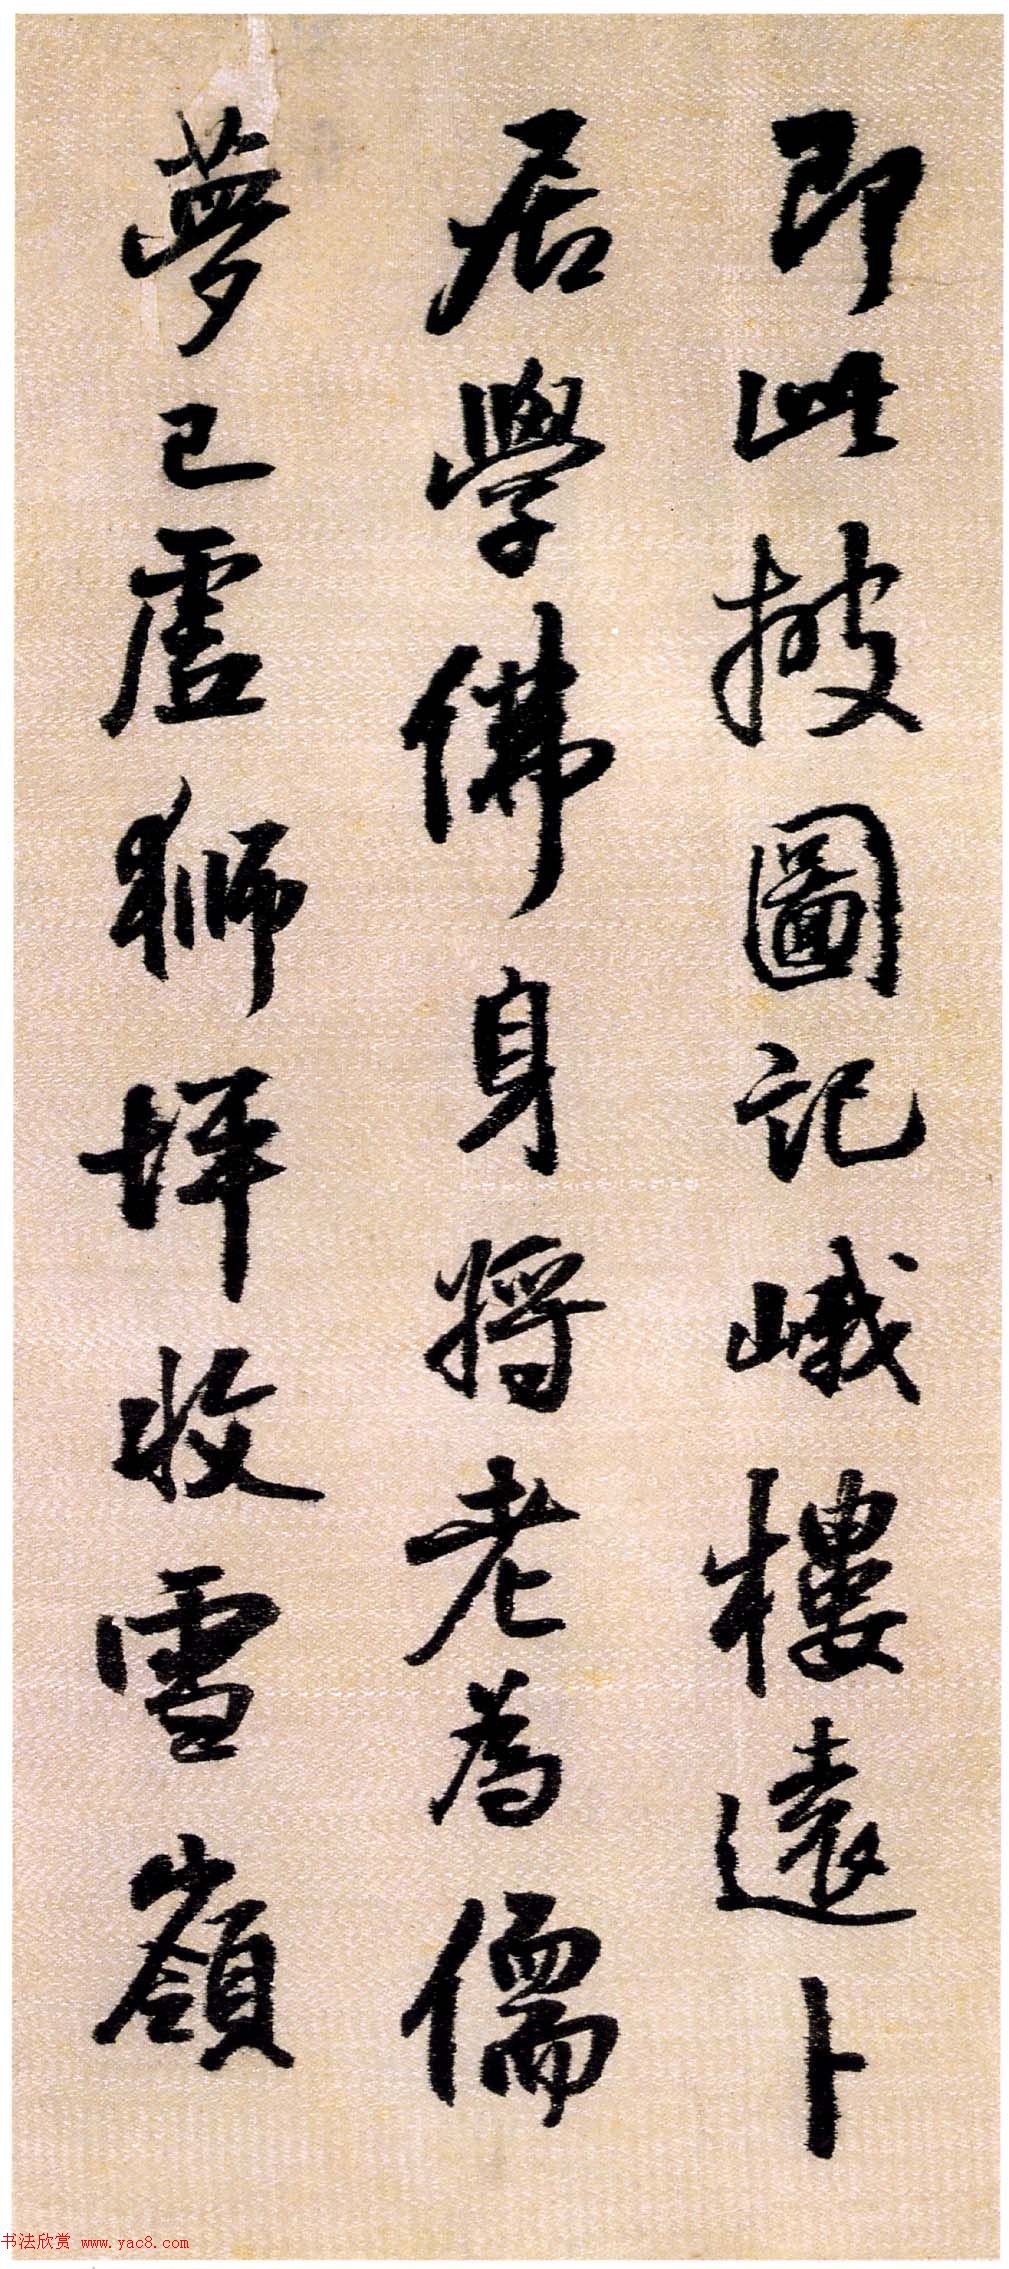 即此披圖記峨樓遠卜
居學佛身將老為儒
夢已虛獅坪收雪嶺
书法欣赏 www.yac8.com